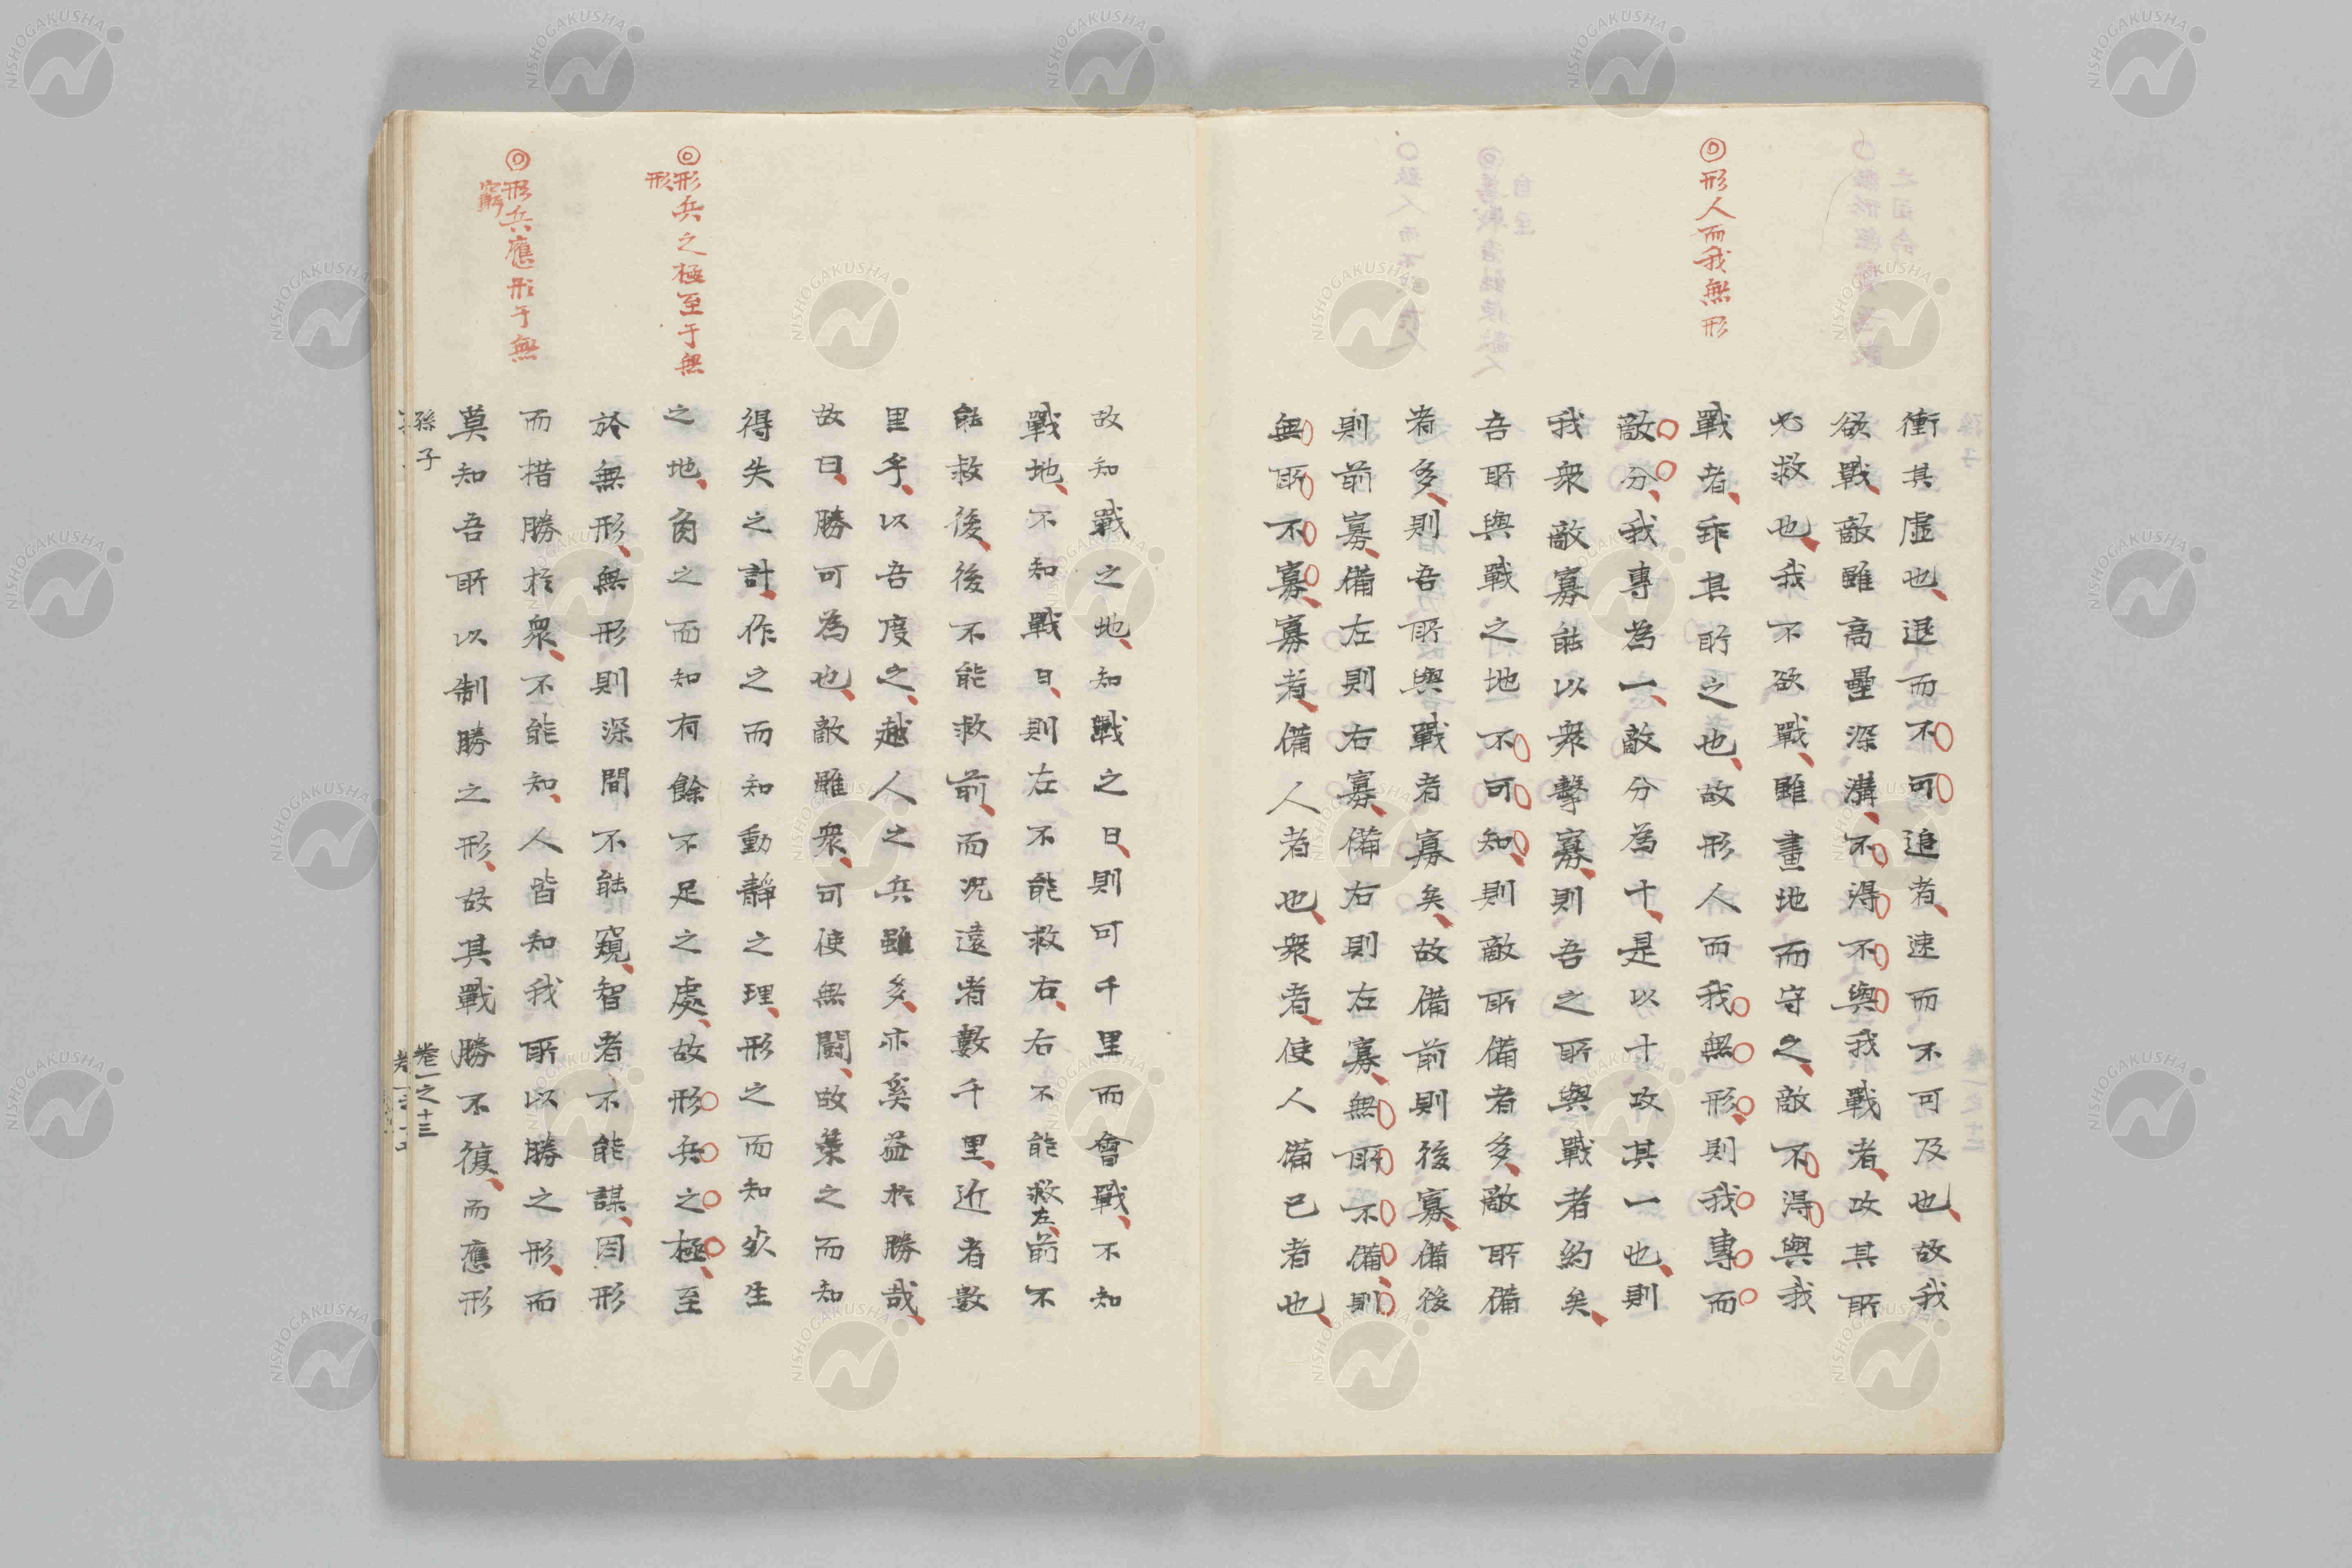 ◎形人而我無形
衝其虛也退而不可追者速而不可及也故我
欲戰敵雖高壘深溝不得不與我戰者攻其所
必救也我不欲戰雖畫地而守之敵不得與我
戰者乖其所之也故形人而我無形則我專而
敵分我專為一敵分為十是以十攻其一也則
我衆敵寡能以衆擊寡則吾之所與戰者約矣
吾所與戰之地不可知不可知則敵所備者多敵所備
者多則吾所與戰者寡矣故備前則後寡備後
則前寡備左則右寡備右則左寡無所不備則
無所不寡寡者備人者也衆者使人備已者也
◎形兵之極至于無
形
◎形兵應形于無
窮
故知戰之地知戰之日則可千里而會戰不知
戰地不知戰日則左不能救右右不能救左前不
能救後後不能救前而況遠者數千里近者數
里乎以吾度之越人之兵雖多亦奚益於勝哉
故曰勝可為也敵雖衆可使無鬪故策之而知
得失之計作之而知動靜之理形之而知死生
之地角之而知有餘不足之處故形兵之極至
於無形無形則深間不能窺智者不能謀因形
而措勝於衆不能知人皆知我所以勝之形而
莫知吾所以制勝之形故其戰勝不復而應形
孫子
卷一之十三
NISHOGAKUSHA